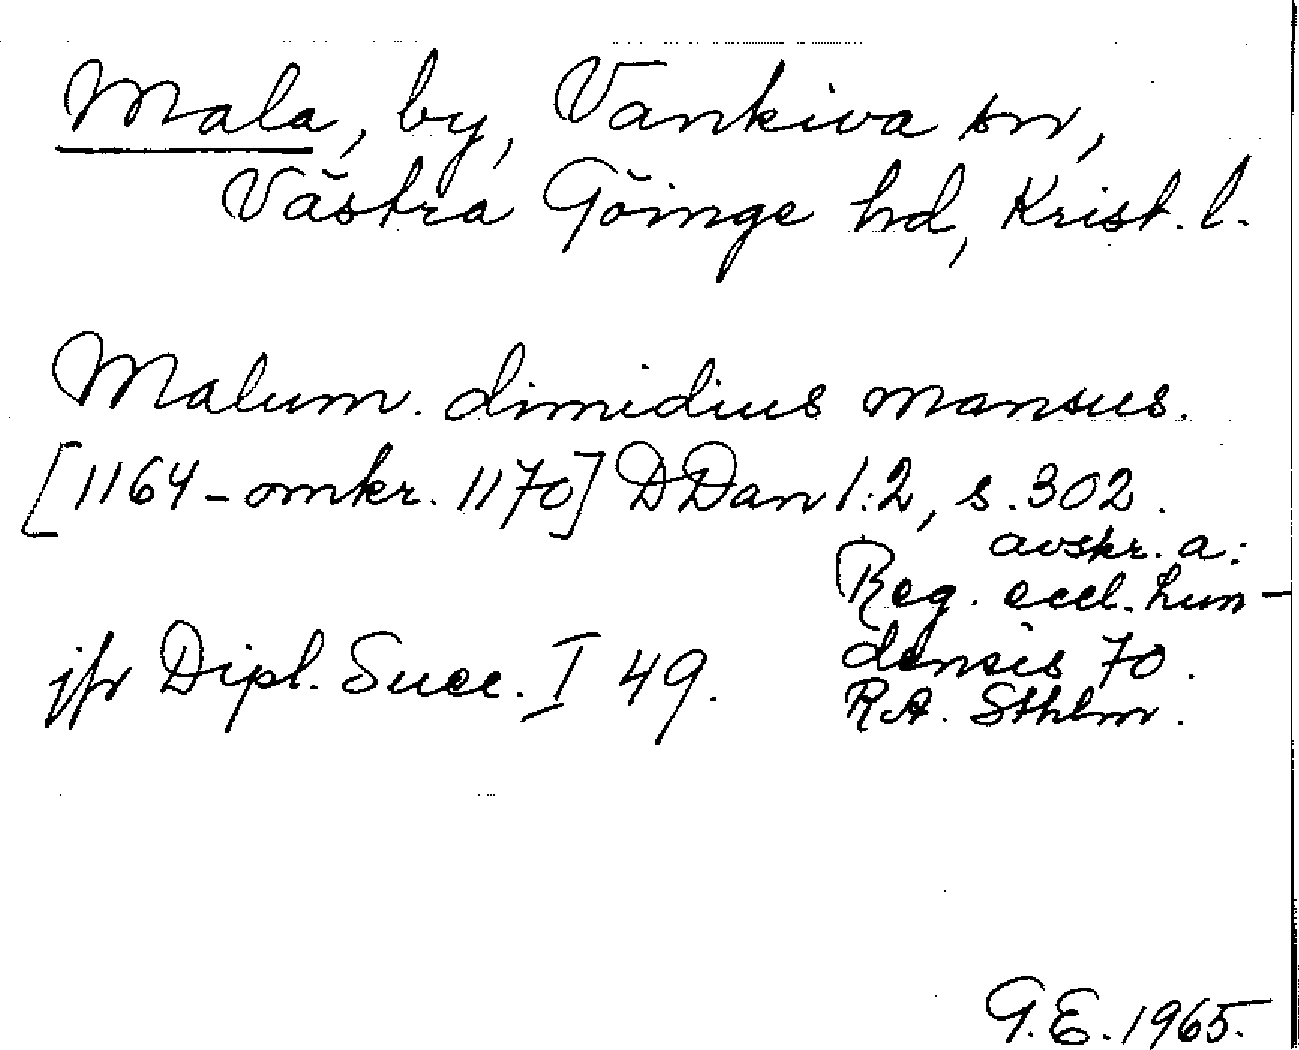 Mala, by, Vankiva sn,
Västra Göinge hd, Krist. l.
Malum. dimidius mansus.
[1164-omkr. 1170] DDan 1:2, s. 302.
avskr. a:
Reg. eccl. Lun-
densis 70.
R.A. Sthlm.
jfr Dipl. Suec. I 49.
G.E. 1965.